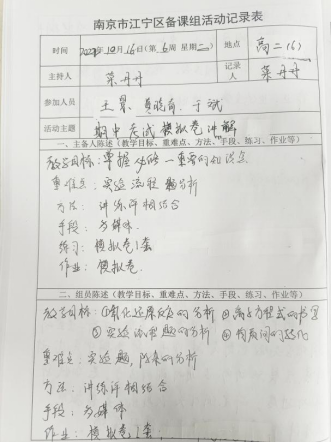 南京市江宁区备课组活动记录表
时间 10月16日(第6周 星期二) 地点 高二(6)
主持人 丹丹 记录人 丹丹
参加人员
活动主题 期中考试模拟卷讲解
一、主备人陈述(教学目标、重难点、方法、手段、练习、作业等)
教学目标:掌握必修一重要的知识点
重难点:实验流程题分析
方法:讲练评相结合
手段:多媒体
练习:模拟卷1套
作业:模拟卷.
二、组员陈述(教学目标、重难点、方法、手段、练习、作业等)
教学目标:①氧化还原反应的分析 ②离子方程式的书写
③实验流程题的分析 ④物质间的转化
重难点:实验题,的分析
方法:讲练评相结合
手段:多媒体
作业:模拟卷1套.